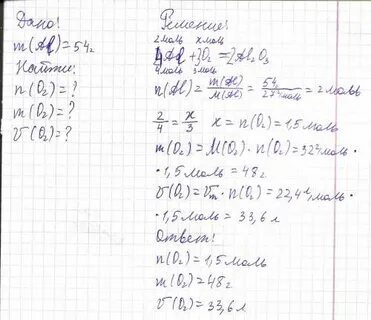 Дано:
m(Al)=54г
Найти:
n(O₂)=?
m(O₂)=?
V(O₂)=?
Решение:
2моль x моль
4Al+3O₂=2Al₂O₃
4моль 3моль
n(Al)=m(Al)/M(Al)=54г/27г/моль=2моль
2/4=x/3 x=n(O₂)=1,5моль
m(O₂)=M(O₂)·n(O₂)=32г/моль·
·1,5моль=48г
V(O₂)=Vm·n(O₂)=22,4л/моль·
·1,5моль=33,6л
Ответ:
n(O₂)=1,5моль
m(O₂)=48г
V(O₂)=33,6л